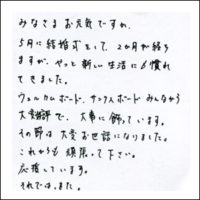 みなさまお元気ですか。
5月に結婚式をして、2か月が経ち
ますが、やっと新しい生活にも慣れ
てきました。
ウェルカムボード、サンクスボードみんなから
大好評で、大事に飾っています。
その節は大変お世話になりました。
これからも頑張って下さい。
応援しています。
それでは、また。